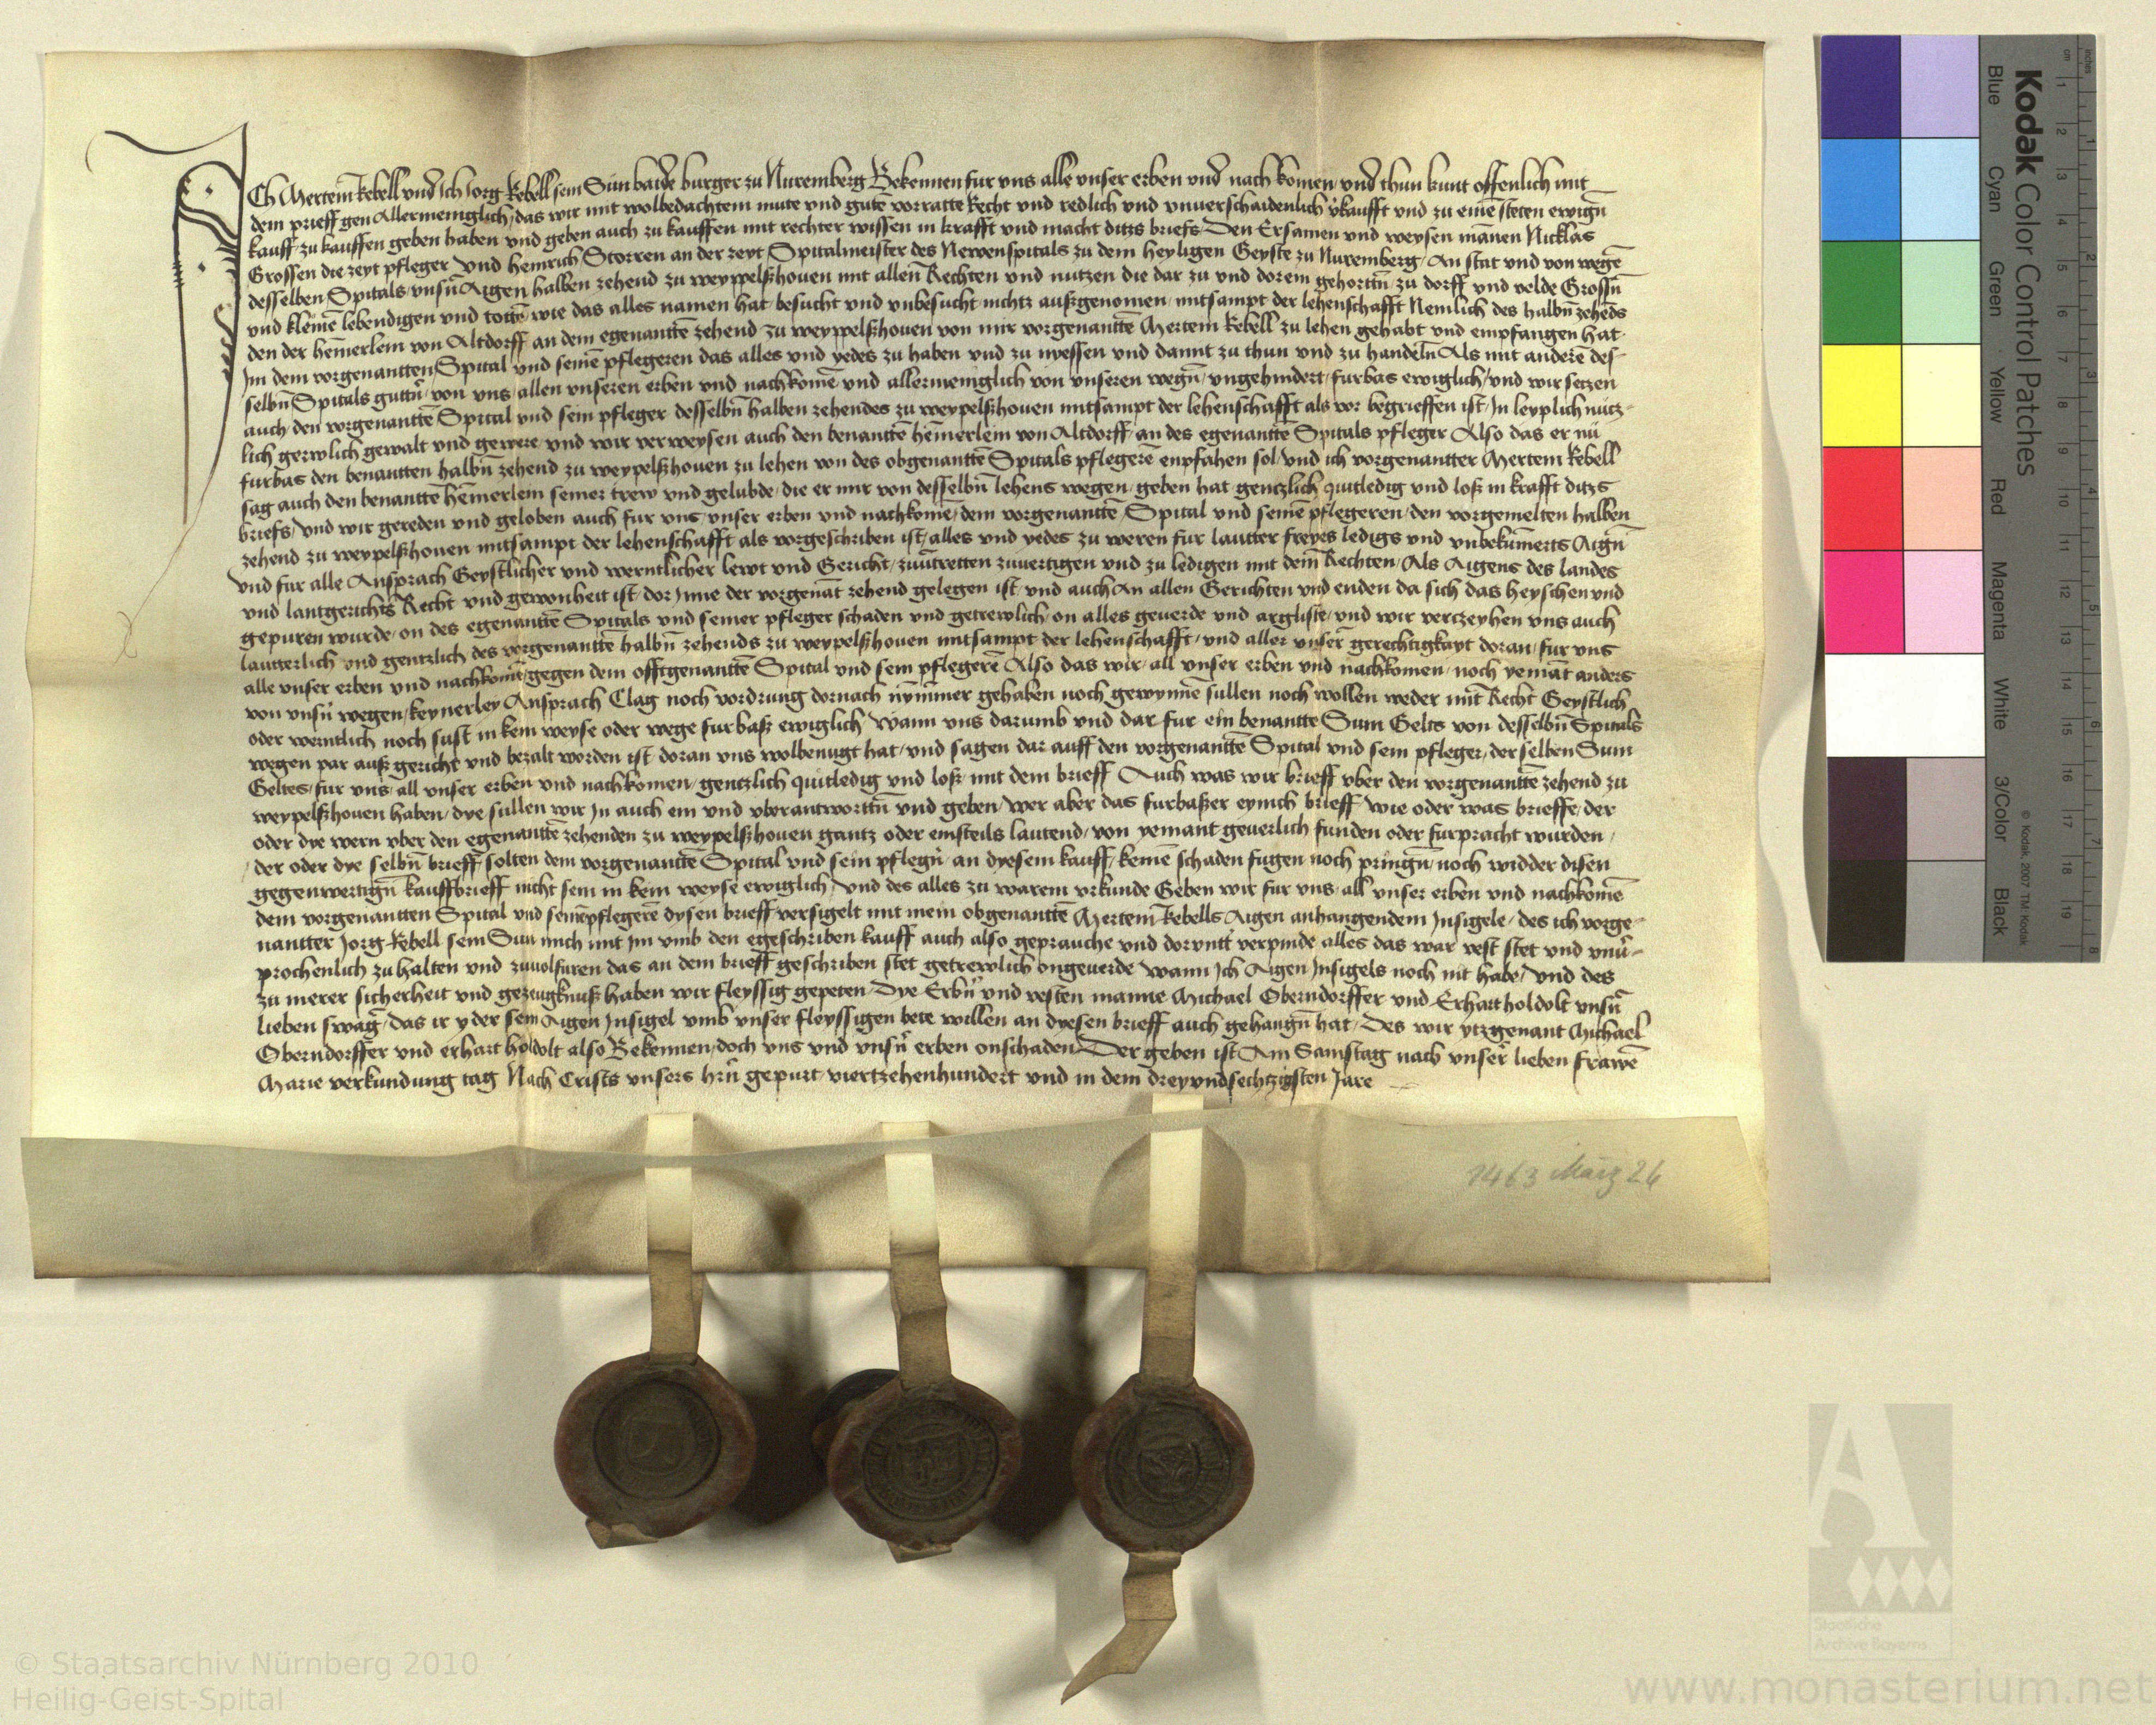 ICh Mertein Kebell und Ich Jorg Kebell sein Sun baide burger zu Nuremberg Bekennen fur uns alle unser erben und nach komen und thun kunt offenlich mit
dem prieff gen Allermeniglich das wir mit wolbedachtem mute und gutē vorratte Recht und redlich und unuerschaidenlich vkaufft und zu einē steten ewign̄
kauff zu kauffen geben haben und geben auch zu kauffen mit rechter wissen in krafft und macht ditzs briefs Den Ersamen und weysen mānen Nicklas
Grossen die zeyt pfleger und heinrich Storren an der zeyt Spitalmeister des Newenspitals zu dem heyligen Geyste zu Nuremberg An stat und von wegē
desselben Spitals unsn̄ Aigen halben zehend zu weyppelßhouen mit allen Rechten und nutzen die dar zu und dorein gehorttn̄ zu dorff und velde Grossn̄
und kleinē lebendigen und tottē wie das alles namen hat besucht und unbesucht nichtz außgenomen mitsampt der lehenschafft Nemlich des halbn̄ zehēds
den der hēmerlein von Altdorff an dem egenantte zehend zu weyppelßhouen von mir vorgenanttē Mertein Kebell zu lehen gehabt und empfangen hat
Im dem vorgenantten Spital und seinē pflegeren das alles und yedes zu haben und zu nyessen und damit zu thun und zu handeln Als mit anderē des-
selbn̄ Spitals guttn̄ von uns allen unseren erben und nachkomē und allermeniglich von unseren wegn̄ ungehindert furbas ewiglich und wir setzen
auch den vorgenanttē Spital und sein pfleger desselbn̄ halben zehendes zu weypelßhouen mitsampt der lehenschafft als vor begrieffen ist In leyplich nutz-
lich gerwlich gewalt und gewere und wir verweysen auch den benanttē hēmerlein von Altdorff an des egenanttē Spitals pfleger Also das er nū
furbas den benantten halbn̄ zehend zu weypelßhouen zu lehen von des obgenanttē Spitals pflegerē enpfahen sol und ich vorgenantter Mertein Kebell
sag auch den benanttē hēmerlein seiner trew und gelubde die er mir von desselbn̄ lehens wegen geben hat gentzlich quitledig und loß in krafft ditzs
briefs und wir gereden und geloben auch fur uns unser erben und nachkomē dem vorgenanttē Spital und seinē pflegeren den vorgemelten halben
zehend zu weypelßhouen mitsampt der lehenschafft als vorgeschriben ist alles und yedes zu weren fur lautter freyes ledigs und unbekumerts Aign̄
und fur alle Ansprach Geystlicher und werntlicher lewt und Gericht zuu̇tretten zuuertigen und zu ledigen mit dem Rechten Als Aigens des landes
und lantgerichts Recht und gewonheit ist dor Inne der vorgenāt zehend gelegen ist und auch An allen Gerichten und enden da sich das heyschen und
gepuren wurde on des egenanttē Spitals und seiner pfleger schaden und getrewlich on alles geuerde und argliste und wir verczeyhen uns auch
lautterlich und gentzlich des vorgenanttē halbn̄ zehends zu weypelßhouen mitsampt der lehenschafft und aller unser gerechtigkayt doran fur uns
alle unser erben und nachkomē gegen dem offtgenanttē Spital und sein pflegerē Also das wir all unser erben und nachkomen noch yemāt anders
von unsn̄ wegen keynerley Ansprach Clag noch vordrung dornach nymmer gehaben noch gewynnē sullen noch wollen weder mit Recht Geystlich
oder werntlich noch sust in kein weyse oder wege furbaß ewiglich Wann uns darumb und dar fur ein benantte Sum Gelts von desselbn̄ Spitals
wegen par auß gericht und bezalt worden ist doran uns wolbenugt hat und sagen dar auff den vorgenanttē Spital und sein pfleger derselben Sum
Geltes fur uns all unser erben und nachkomen gentzlich quitledig und loß mit dem brieff Auch was wir brieff uber den vorgenanttē zehend zu
weypelßhouen haben dye sullen wir In auch ein und uberantworttn̄ und geben wer aber das furbaßer eynich brieff wie oder was brieffe der
oder dye wern uber den egenanttē zehenden zu weypelßhouen gantz oder einsteils lautend von yemant geuerlich funden oder furpracht wurden
der oder dye selbn̄ brieff solten dem vorgenanttē Spital und sein pflegn̄ an dyesem kauff keinē schaden fugen noch pringn̄ noch widder disen
gegenwertign̄ kauffbrieff nicht sein in kein weyse ewiglich Und des alles zu warem urkunde Geben wir fur uns all unser erben und nachkomē
dem vorgenantten Spital und seinē pflegerē dysen brieff versigelt mit mein obgenanttē Mertein Kebells Aigen anhangendem Insigele des ich vorge-
nantter Jorg Kebell sein Sun mich mit Im umb den egeschriben kauff auch also geprauche und doruntt verpinde alles das war vest stet und unū-
prochenlich zu halten und zuuolfuren das an dem brieff geschriben stet getrewlich ongeuerde Wann Ich Aigen Insigels noch nit habe Und des
zu merer sicherheit und gezeugknuß haben wir fleyssig gepeten Dye Erbn̄ und vesten manne Michael Oberndorffer und Erhart holdolt unsn̄
lieben swag̅ das ir yder sein Aigen Insigel umb unser fleyssigen bete willen an dyesen brieff auch gehangn̄ hat Des wir ytzgenant Michael
Oberndorffer und erhart holdolt also Bekennen doch uns und unsn̄ erben onschaden Der geben ist Am Samstag nach unser lieben frawē
Marie verkundung tag Nach Crists unsers hrn̄ gepurt viertzehenhundert und in dem dreyundsechtzigsten Jare
1463 März 26
Kodak Color Control Patches
Blue Cyan Green Yellow Red Magenta White 3/Color Black
© Kodak, 2007 TM Kodak
cm 1 2 3 4 5 6 7 8 9 10 11 12 13 14 15 16 17 18 19
inches 1 2 3 4 5 6 7 8
Staatliche
Archive Bayerns
© Staatsarchiv Nürnberg 2010
Heilig-Geist-Spital
www.monasterium.net